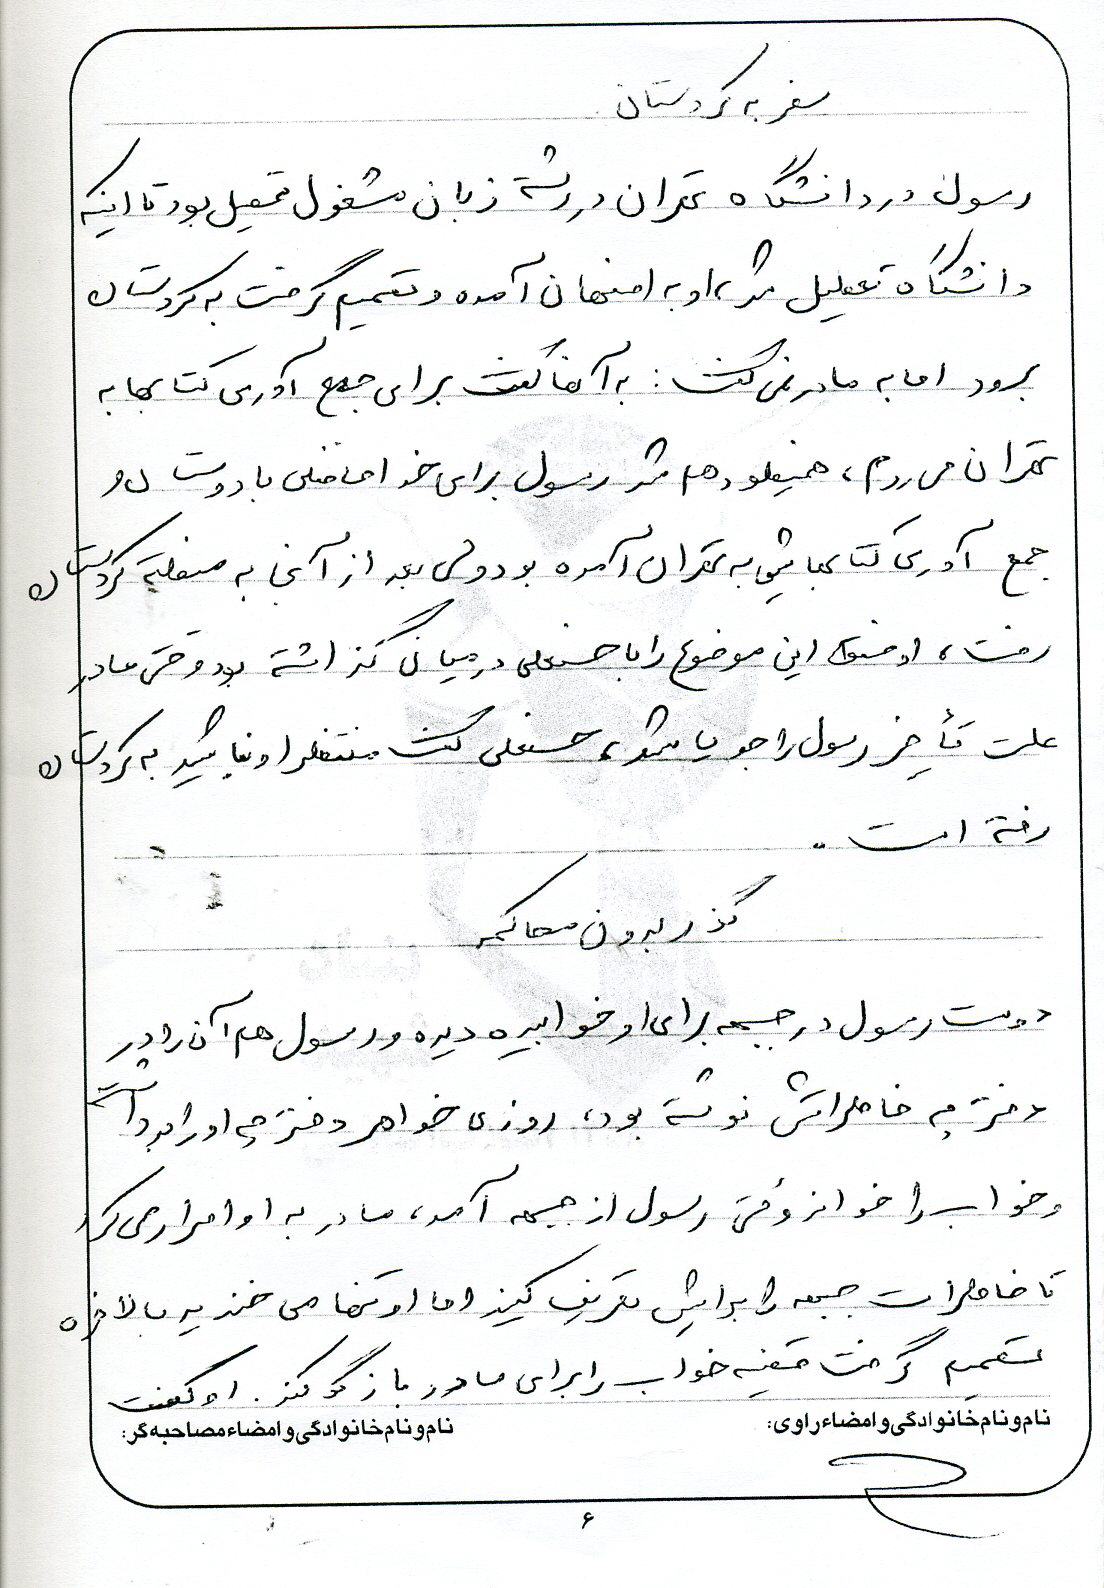 سفر به کردستان
رسول در دانشگاه تهران در رشته زبان مشغول تحصیل بود تا اینکه
دانشگاه تعطیل شد، او به اصفهان آمده و تصمیم گرفت به کردستان
برود اما به مادر نمی گفت: به آنها گفت برای جمع آوری کتابها به
تهران می روم، همینطور هم شد رسول برای خداحافظی با دوستان و
جمع آوری کتابهایش به تهران آمده بود ولی بعد از آنجا به منطقه کردستان
رفت، او این موضوع را با حسنعلی در میان گذاشته بود وقتی مادر
علت تأخیر رسول را جویا میشد، حسنعلی گفت منتظر او نباشید به کردستان
رفته است.
گذر بدون محاکمه
دوست رسول در جبهه برای او خوابی دیده و رسول هم آن را در
دفترچه خاطراتش نوشته بود، روزی خواهر دفترچه او را برداشته
و خواب را خواند وقتی رسول از جبهه آمد، مادر به او اصرار می کرد
تا خاطرات جبهه را برایش تعریف کند اما او تنها می خندید بالاخره
تصمیم گرفت قضیه خواب را برای مادر بازگو کند. او گفت
نام و نام خانوادگی و امضاء راوی: نام و نام خانوادگی و امضاء مصاحبه گر:
۶